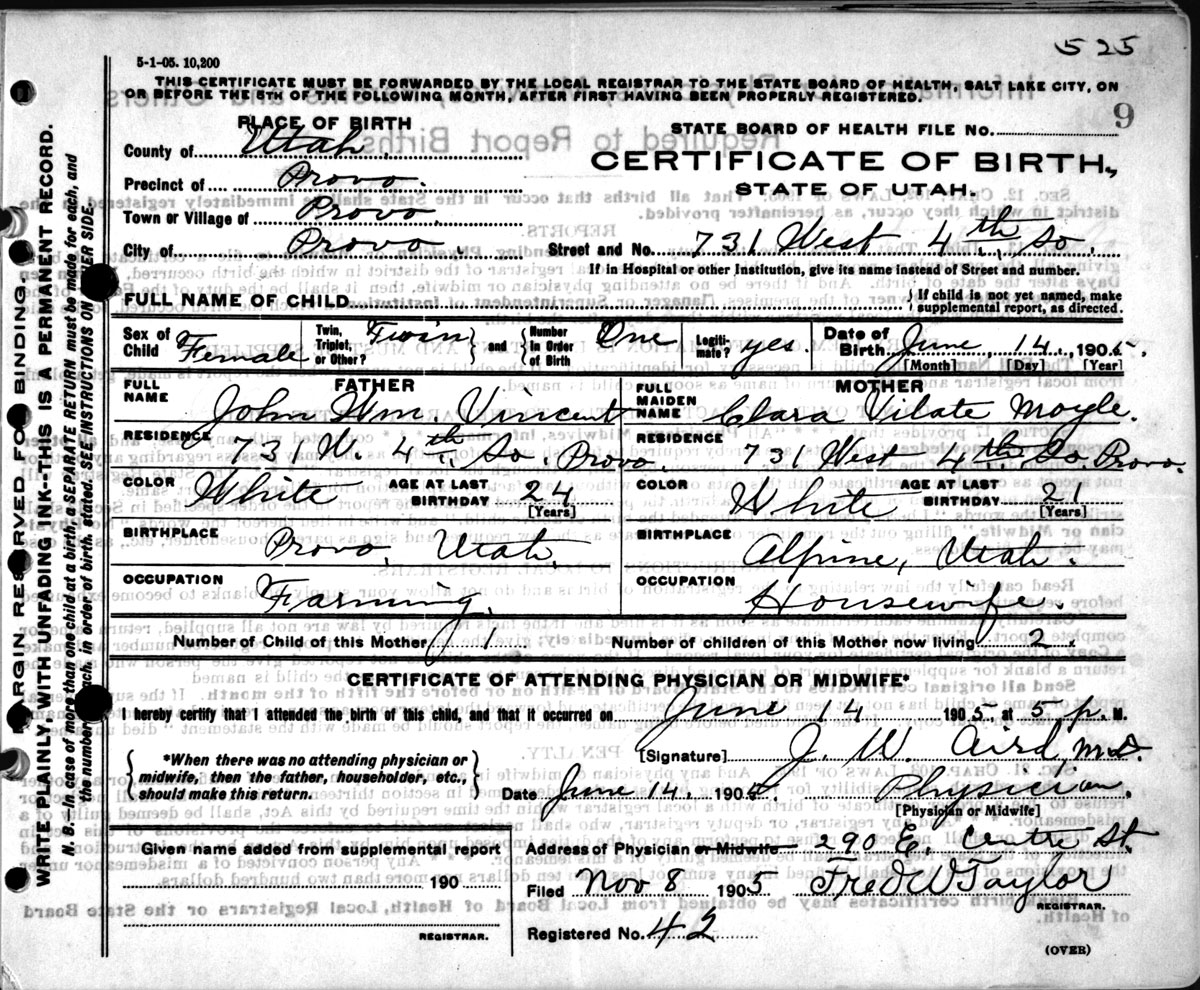 525
5-1-05. 10,200
THIS CERTIFICATE MUST BE FORWARDED BY THE LOCAL REGISTRAR TO THE STATE BOARD OF HEALTH, SALT LAKE CITY, ON
OR BEFORE THE 5TH OF THE FOLLOWING MONTH, AFTER FIRST HAVING BEEN PROPERLY REGISTERED.
PLACE OF BIRTH
STATE BOARD OF HEALTH FILE No. 9
County of Utah
CERTIFICATE OF BIRTH,
Precinct of Provo.
STATE OF UTAH.
Town or Village of Provo
City of Provo. Street and No. 731 West 4th So.
If in Hospital or other Institution, give its name instead of Street and number.
FULL NAME OF CHILD
If child is not yet named, make
supplemental report, as directed.
Sex of Child Female Twin, Triplet, or Other? Twin and Number in Order of Birth One Legiti-mate? yes. Date of Birth June 14, 1905.
[Month] [Day] [Year]
FATHER MOTHER
FULL NAME John Wm. Vincent FULL MAIDEN NAME Clara Vilate Moyle.
RESIDENCE 731 W. 4th So. Provo. RESIDENCE 731 West 4th So. Provo.
COLOR White AGE AT LAST BIRTHDAY 24 [Years] COLOR White AGE AT LAST BIRTHDAY 21 [Years]
BIRTHPLACE Provo, Utah. BIRTHPLACE Alpine, Utah.
OCCUPATION Farming. OCCUPATION Housewife.
Number of Child of this Mother 1 Number of children of this Mother now living 2
CERTIFICATE OF ATTENDING PHYSICIAN OR MIDWIFE*
I hereby certify that I attended the birth of this child, and that it occurred on June 14 1905 at 5 p. M.
*When there was no attending physician or
midwife, then the father, householder, etc.,
should make this return.
[Signature] J. W. Aird, M.D.
Date June 14 1905 Physician.
[Physician or Midwife]
Given name added from supplemental report
190
REGISTRAR.
Address of Physician or Midwife 290 E. Centre St.
Filed Nov 8 1905 Fred W Taylor
REGISTRAR.
Registered No. 42
(OVER)
MARGIN RESERVED FOR BINDING.
WRITE PLAINLY WITH UNFADING INK--THIS IS A PERMANENT RECORD.
N. B.--In case of more than one child at a birth, a SEPARATE RETURN must be made for each, and
the number of each, in order of birth, stated. SEE INSTRUCTIONS ON OTHER SIDE.